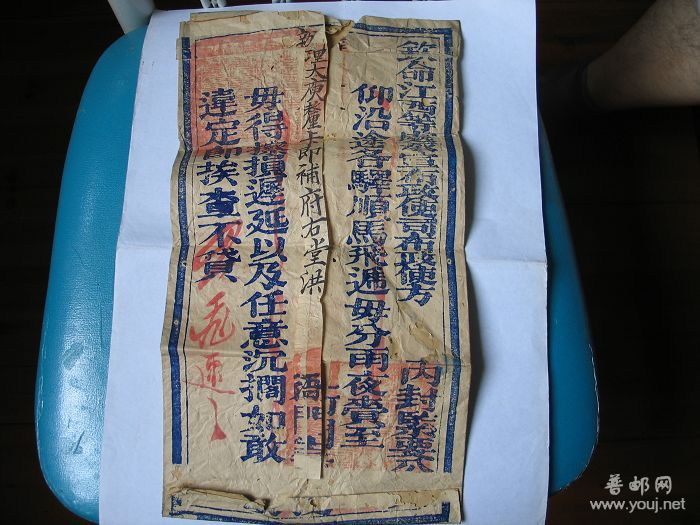 钦命江西等处承宣布政使司布政使方
内封緊要
仰沿途各驛順馬飛遞毋分雨夜賫至
辦理大庾釐卡即補府右堂洪
毋得擦損遲延以及任意沉擱如敢
違定即挨查不貸
速
普邮网
www.youj.net